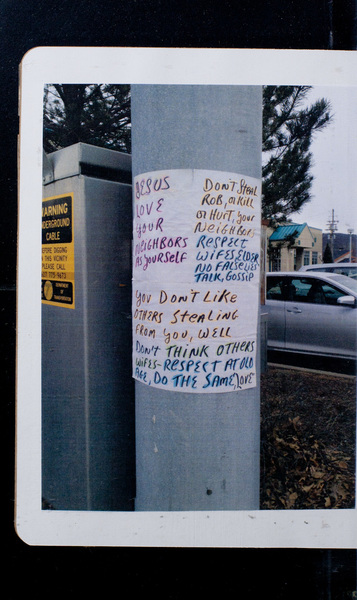 WARNING
UNDERGROUND
CABLE
BEFORE DIGGING
IN THIS VICINITY
PLEASE CALL
DEPARTMENT
OF
TRANSPORTATION
JESUS
LOVE
YOUR
NEIGHBORS
AS YOURSELF
DON'T STEAL
ROB, OR KILL
OR HURT, YOUR
NEIGHBORS
RESPECT
WIFES, ELDER
NO FALSE LIES
TALK, GOSSIP
YOU DON'T LIKE
OTHERS STEALING
FROM YOU, WELL
DON'T THINK OTHERS
WIFES- RESPECT AT OLD
AGE, DO THE SAME, LOVE